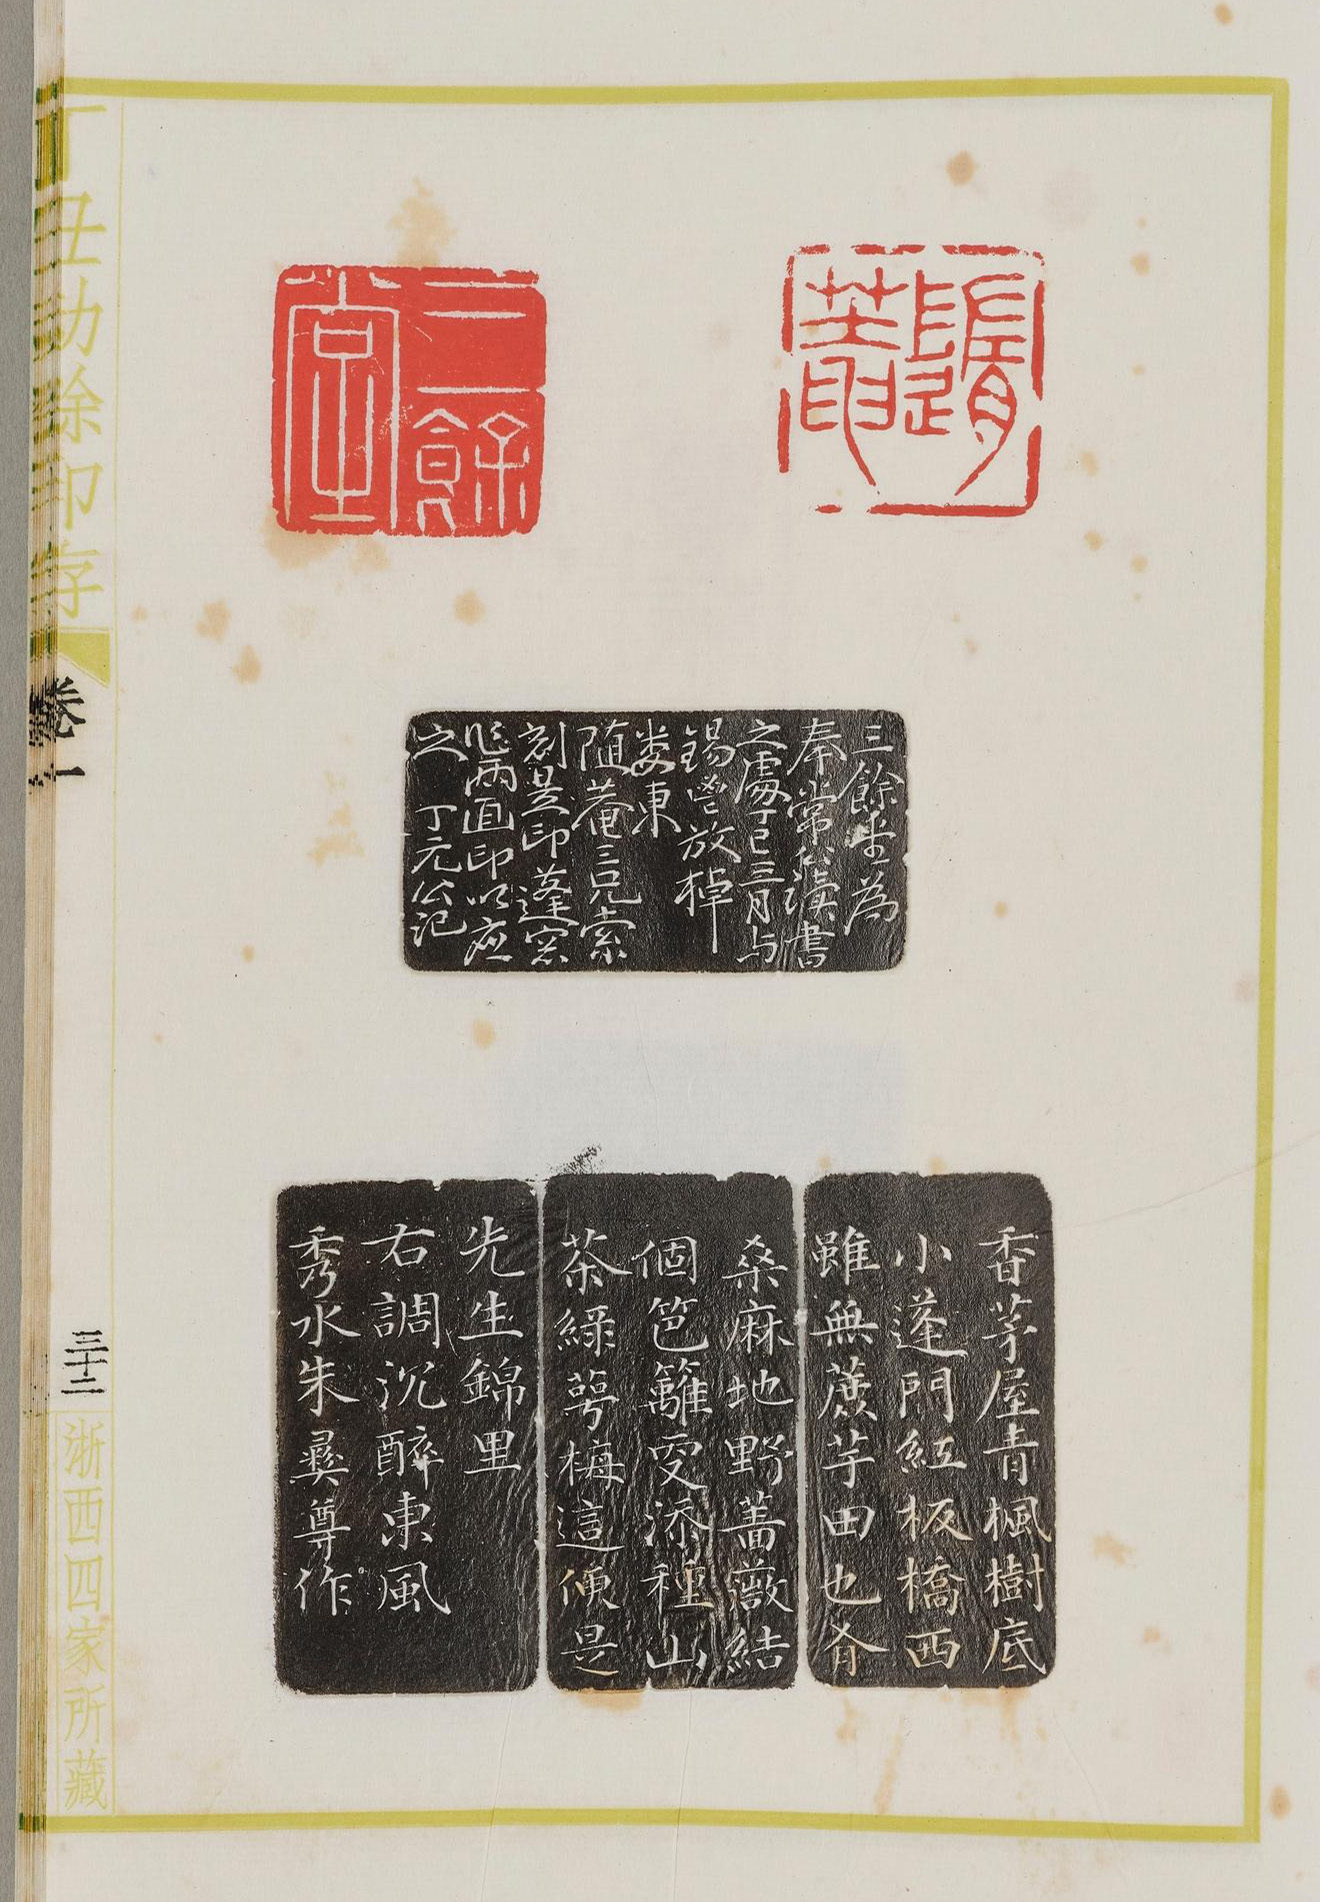 隨菴
三餘堂
三餘堂為
奉常公讀書
之處丁巳三月与
錫鬯放棹
婁東
隨菴三兄索
刻是印蓬窓
作兩面印以應
之 丁元公記
香茅屋青楓樹底
小蓬門紅板橋西
雖無蔗芋田也有
桑麻地野薔薇結
個笆籬更添種山
茶綠萼梅這便是
先生錦里
右調沉醉東風
秀水朱彝尊作
丁丑劫餘印存
卷一
三十二
浙西四家所藏